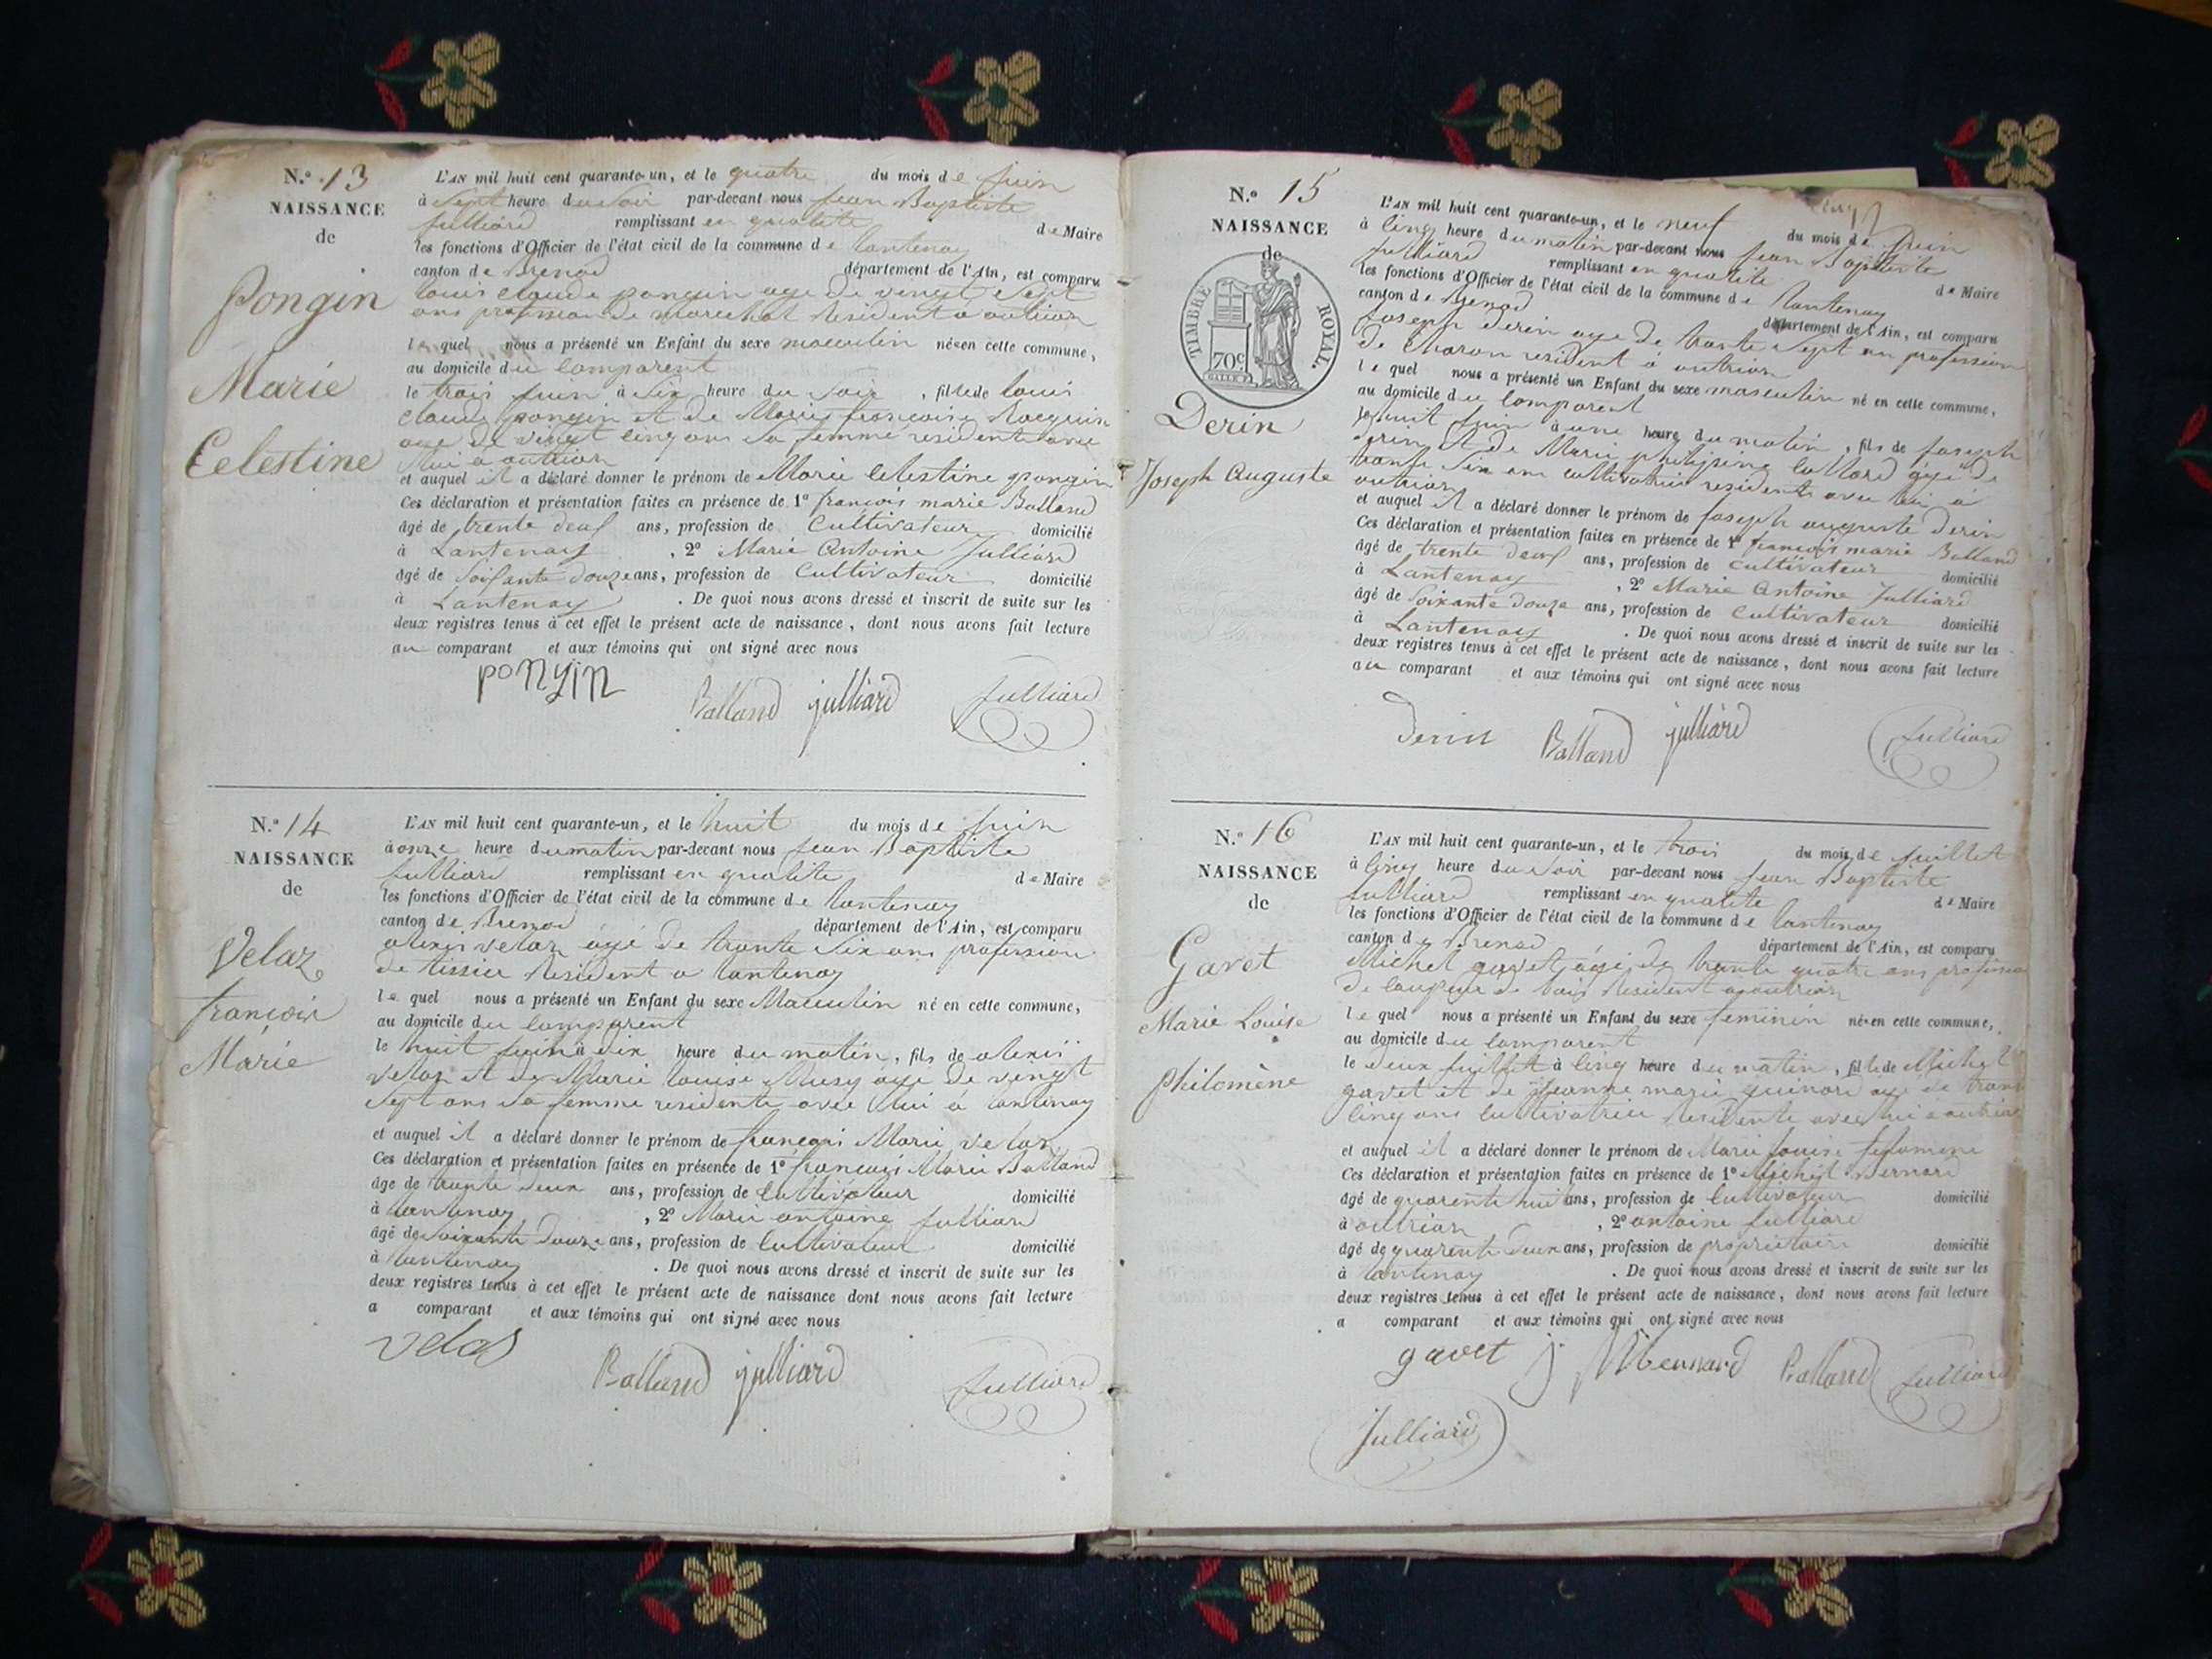 N.º 13
NAISSANCE
de
Pongin
Marie
Celestine
L'AN mil huit cent quarante-un, et le quatre du mois de juin
à sept heure du soir par-devant nous jean Baptiste
julliard remplissant en qualité de Maire
les fonctions d'Officier de l'état civil de la commune de lantenay
canton de Brenod département de l'Ain, est comparu
louis claude pongin age de vingt sept
ans profession de marechal résident a outriaz
le quel nous a présenté un Enfant du sexe masculin né en cette commune,
au domicile du comparent
le trois juin à six heure du soir, fille de louis
claude pongin et de Marie françoise Racquin
age de vingt cinq ans sa femme residente avec
lui a outriaz
et auquel il a déclaré donner le prénom de Marie celestine pongin
Ces déclaration et présentation faites en présence de 1º françois marie Balland
âgé de trente deux ans, profession de Cultivateur domicilié
à Lantenay, 2º Marie Antoine Julliard
âgé de Soixante douze ans, profession de Cultivateur domicilié
à Lantenay. De quoi nous avons dressé et inscrit de suite sur les
deux registres tenus à cet effet le présent acte de naissance, dont nous avons fait lecture
au comparant et aux témoins qui ont signé avec nous
pongin Balland julliard Julliard
N.º 14
NAISSANCE
de
Velaz
françois
Marie
L'AN mil huit cent quarante-un, et le huit du mois de juin
à onze heure du matin par-devant nous jean Baptiste
julliard remplissant en qualité de Maire
les fonctions d'Officier de l'état civil de la commune de lantenay
canton de Brenod département de l'Ain, est comparu
alexis velaz âgé de trante six ans profession
de tissier résident a lantenay
le quel nous a présenté un Enfant du sexe Masculin né en cette commune,
au domicile du comparent
le huit juin à dix heure du matin, fils de alexis
velaz et de Marie louise Musy âge de vingt
sept ans sa femme residente avec lui à lantenay
et auquel il a déclaré donner le prénom de françois Marie velaz
Ces déclaration et présentation faites en présence de 1º françois Marie Balland
âge de trante deux ans, profession de Cultivateur domicilié
à lantenay, 2º Marie antoine julliard
âgé de soixante douze ans, profession de Cultivateur domicilié
à lantenay. De quoi nous avons dressé et inscrit de suite sur les
deux registres tenus à cet effet le présent acte de naissance dont nous avons fait lecture
a comparant et aux témoins qui ont signé avec nous
velas Balland julliard Julliard
N.º 15
NAISSANCE
de
TIMBRE ROYAL.
70c
Derin
Joseph Auguste
L'AN mil huit cent quarante-un, et le neuf du mois de juin
à cinq heure du matin par-devant nous jean Baptiste
julliard remplissant en qualité de Maire
les fonctions d'Officier de l'état civil de la commune de lantenay
canton de Brenod département de l'Ain, est comparu
joseph derin age de trante sept an profession
de charon resident à outriaz
le quel nous a présenté un Enfant du sexe masculin né en cette commune,
au domicile du comparent
le huit juin à une heure du matin, fils de joseph
derin et de Marie philipine collard âgé de
trante six ans cultivatrice residente avec lui à
outriaz
et auquel il a déclaré donner le prénom de joseph auguste derin
Ces déclaration et présentation faites en présence de 1º françois marie Balland
âgé de trente deux ans, profession de Cultivateur domicilié
à Lantenay, 2º Marie Antoine Julliard
âgé de Soixante douze ans, profession de Cultivateur domicilié
à Lantenay. De quoi nous avons dressé et inscrit de suite sur les
deux registres tenus à cet effet le présent acte de naissance, dont nous avons fait lecture
au comparant et aux témoins qui ont signé avec nous
Derin Balland julliard Julliard
N.º 16
NAISSANCE
de
Gavet
Marie Louise
philomène
L'AN mil huit cent quarante-un, et le trois du mois de juillet
à cinq heure du soir par-devant nous jean Baptiste
julliard remplissant en qualité de Maire
les fonctions d'Officier de l'état civil de la commune de lantenay
canton de Brenod département de l'Ain, est comparu
Michel gavet âgé de trante quatre ans profession
de coupeur de bois résident a outriaz
le quel nous a présenté un Enfant du sexe feminin née en cette commune,
au domicile du comparent
le deux juillet à cinq heure du matin, fille de Michel
gavet et de jeanne marie guinard age de trante
cinq ans cultivatrice residente avec lui à outriaz
et auquel il a déclaré donner le prénom de Marie louise filomene
Ces déclaration et présentation faites en présence de 1º Michel Bernard
âgé de quarente huit ans, profession de Cultivateur domicilié
à outriaz, 2º antoine julliard
âgé de quarente deux ans, profession de propriétaire domicilié
à lantenay. De quoi nous avons dressé et inscrit de suite sur les
deux registres tenus à cet effet le présent acte de naissance, dont nous avons fait lecture
a comparant et aux témoins qui ont signé avec nous
gavet j Mbernard Balland Julliard
Julliard